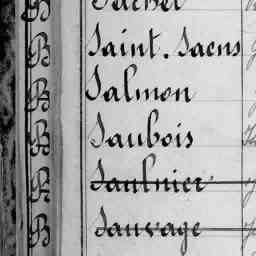 B Sachet
B Saint-Saens
B Salmon
B Saubois
B Saulnier
B Sauvage